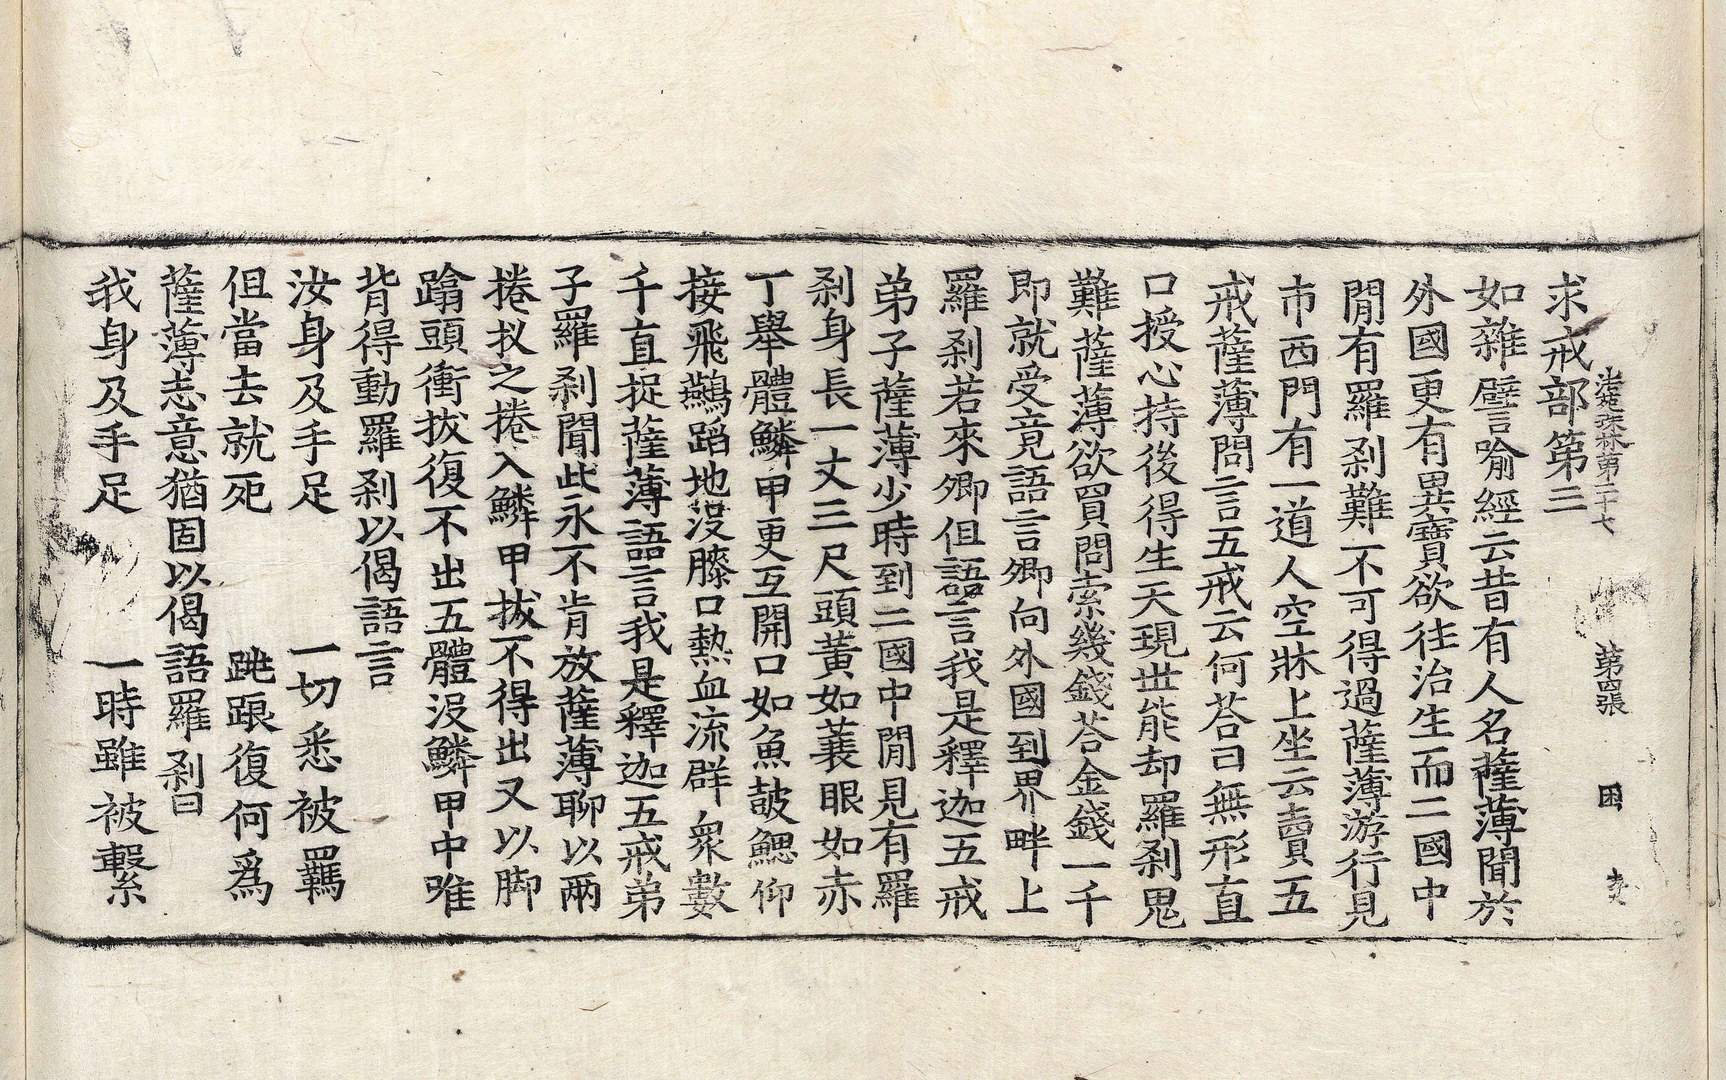 法苑珠林第二十七 第四張 困
求戒部第三
如雜譬喻經云昔有人名薩薄聞於
外國更有異寶欲往治生而二國中
閒有羅剎難不可得過薩薄游行見
市西門有一道人空牀上坐云賣五
戒薩薄問言五戒云何荅曰無形直
口授心持後得生天現世能却羅剎鬼
難薩薄欲買問索幾錢荅金錢一千
即就受竟語言卿向外國到界畔上
羅剎若來卿但語言我是釋迦五戒
弟子薩薄少時到二國中閒見有羅
剎身長一丈三尺頭黃如蓑眼如赤
丁舉體鱗甲更互開口如魚皷鰓仰
接飛鷰蹈地沒膝口熱血流群衆數
千直捉薩薄語言我是釋迦五戒弟
子羅剎聞此永不肯放薩薄聊以兩
捲扠之捲入鱗甲拔不得出又以脚
蹹頭衝拔復不出五體沒鱗甲中唯
背得動羅剎以偈語言
汝身及手足 一切悉被羈
但當去就死 跳踉復何爲
薩薄志意猶固以偈語羅剎曰
我身及手足 一時雖被繫